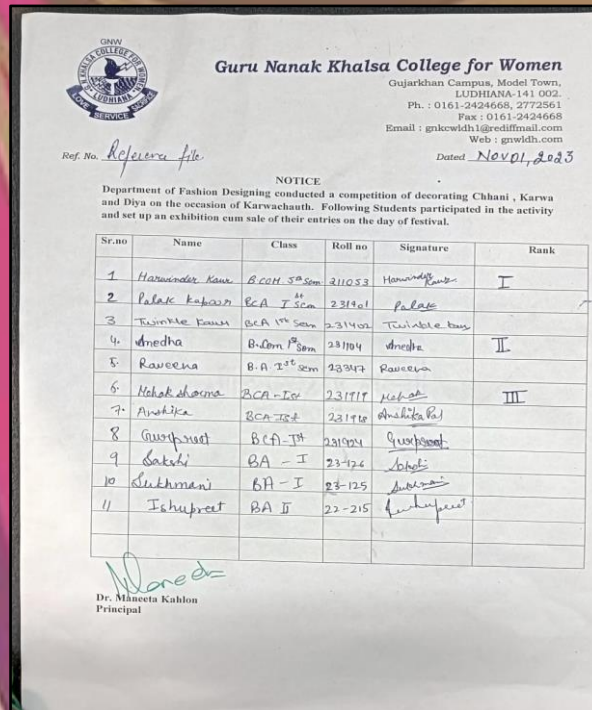 GNW
KHALSA COLLEGE FOR WOMEN
LUDHIANA
LOVE SERVICE
Guru Nanak Khalsa College for Women
Gujarkhan Campus, Model Town,
LUDHIANA-141 002.
Ph. : 0161-2424668, 2772561
Fax : 0161-2424668
Email : gnkcwldh1@rediffmail.com
Web : gnwldh.com
Ref. No. Reference file
Dated Nov 01, 2023
NOTICE
Department of Fashion Designing conducted a competition of decorating Chhani , Karwa
and Diya on the occasion of Karwachauth. Following Students participated in the activity
and set up an exhibition cum sale of their entries on the day of festival.
Sr.no Name Class Roll no Signature Rank
1 Harwinder Kaur B.COM 5th Sem 211053 Harwinder Kaur I
2 Palak Kapoor BCA Ist Sem 231901 Palak
3 Twinkle Kaur BCA 1st Sem 231902 Twinkle
4. Anedha B.Com 1st Sem 231104 Anedha II
5. Raveena B.A Ist Sem 23347 Raveena
6. Mehak sharma BCA-Ist 231919 Mehak III
7. Anshika BCA-Ist 231918 Anshika Pal
8 Gurpreet BCA-Ist 231924 Gurpreet
9 Sakshi BA - I 23-126 Sakshi
10 Sukhmani BA - I 23-125 Sukhmani
11 Ishupreet BA II 22-215 Ishupreet
Dr. Maneeta Kahlon
Principal